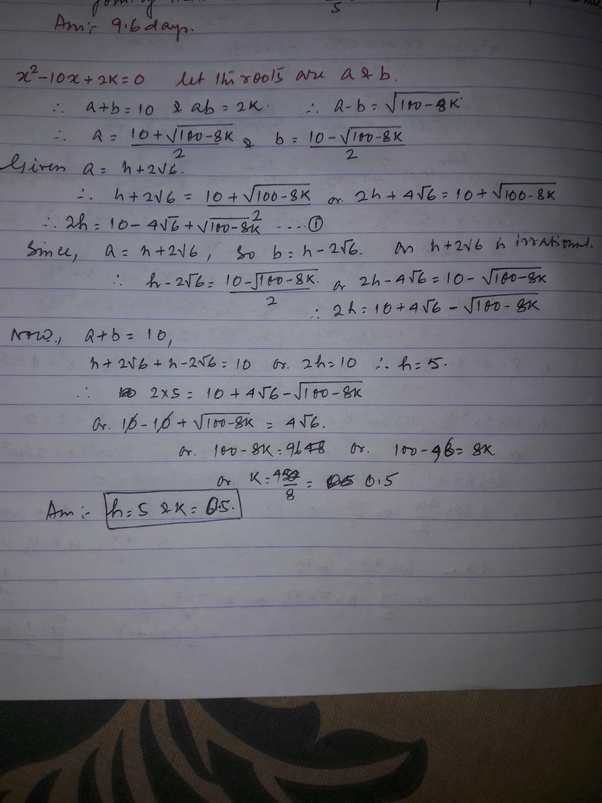 5
Ans:- 9.6 days.
x²-10x+2K=0 let the roots are a & b.
∴ a+b=10 & ab=2K. ∴ a-b=√100-8K.
∴ a= 10+√100-8K / 2 & b= 10-√100-8K / 2
Given a= h+2√6.
∴ h+2√6 = 10+√100-8K / 2 or. 2h+4√6=10+√100-8K
∴ 2h= 10-4√6+√100-8K ....①
Since, a= h+2√6, So b= h-2√6. as h+2√6 is irrational.
∴ h-2√6= 10-√100-8K / 2 or 2h-4√6=10-√100-8K
∴ 2h=10+4√6-√100-8K
Now., a+b=10,
h+2√6+h-2√6=10 or. 2h=10 ∴ h=5.
∴ 2×5= 10+4√6-√100-8K
or. 10-10+√100-8K = 4√6.
or. 100-8K=96 or. 100-96=8K
or K= 4/8 = 0.5
Ans:- h=5 & K=0.5.